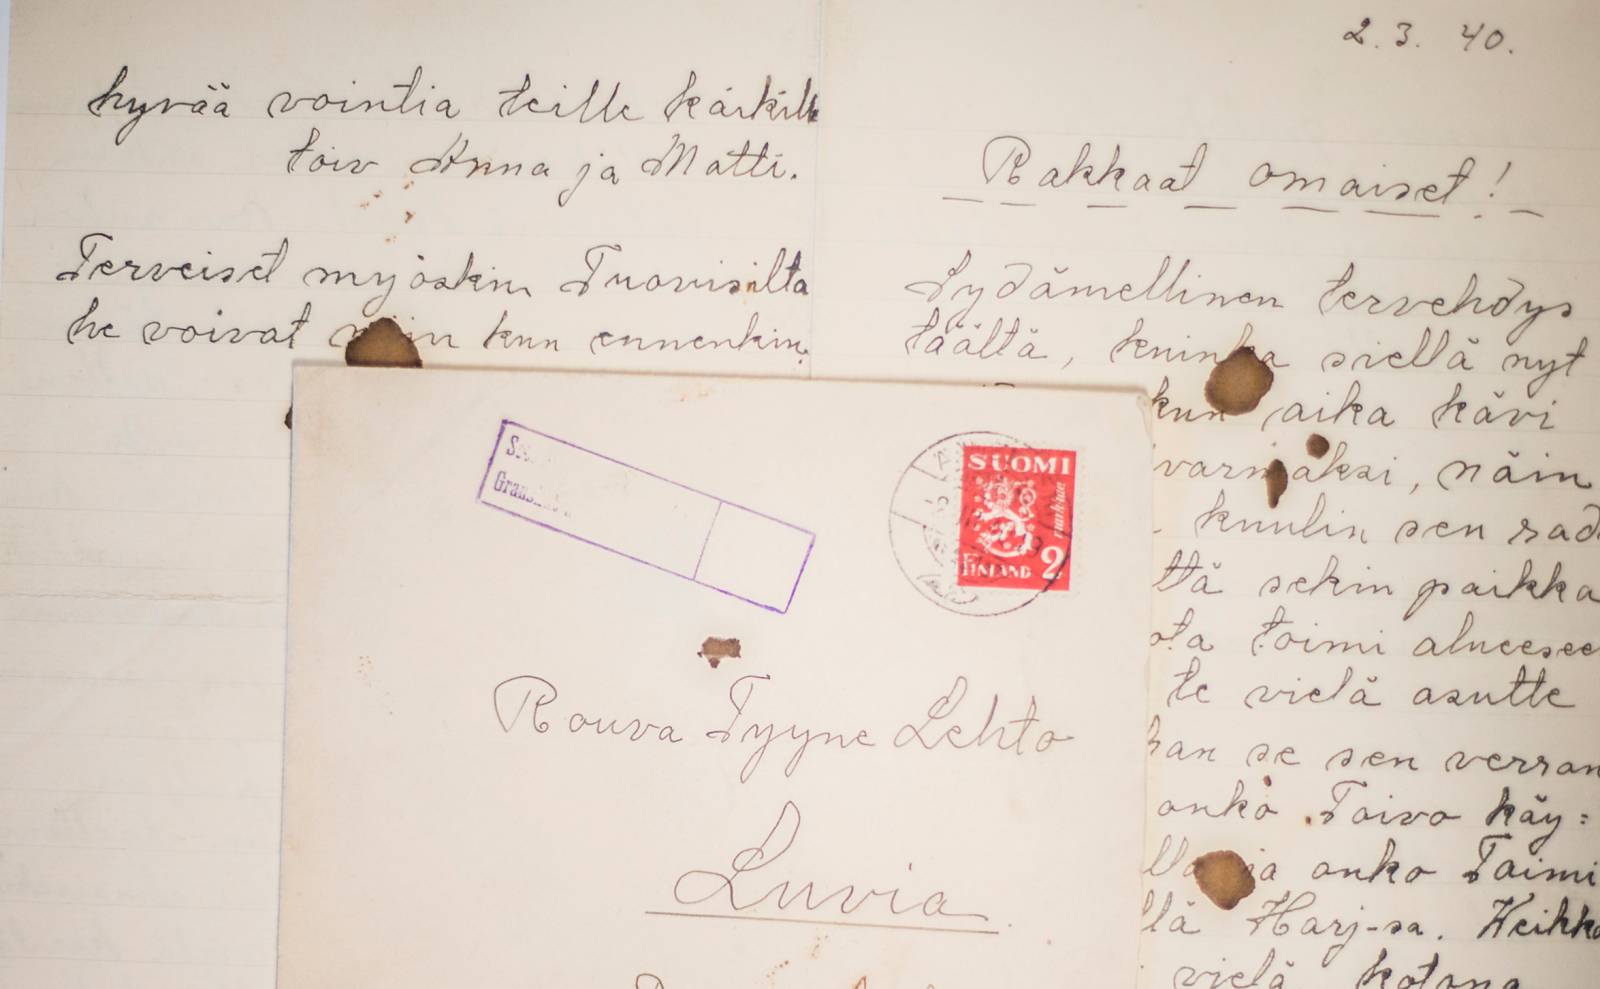 hyvää vointia teille kaikille
toiv Anna ja Matti.
Terveiset myöskin Tuovisilta
he voivat niin kun ennenkin.
2.3. 40.
Rakkaat omaiset!
Sydämellinen tervehdys
täältä, kuinka siellä nyt
kun aika kävi
varmaksi, näin
kuulin sen rad
ttä sekin paikka
ota toimi alueesee
te vielä asutte
han se sen verran
onko Toivo käy=
lla ja onko Taimi
llä Harj-sa. Heikk
vielä kotona
SUOMI
markkaa
FINLAND 2
Rouva Tyyne Lehto
Luvia